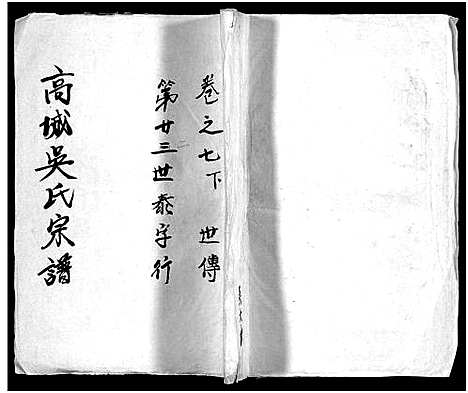 卷之七下 世傳
第廿三世泰字行
高城吳氏宗譜